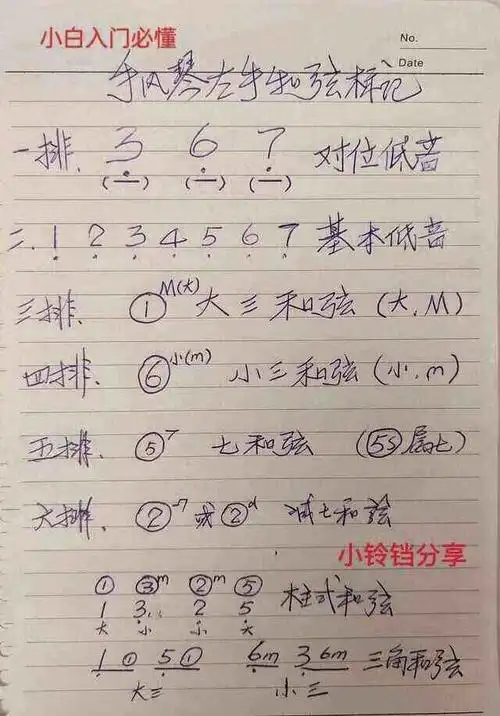 小白入门必懂
No.
Date
手风琴左手和弦标记
一排. 3 6 7 对位低音
(—) (—) (—)
二. 1 2 3 4 5 6 7 基本低音
三排. ①M(大) 大三和弦(大.M)
四排. ⑥小(m) 小三和弦(小.m)
五排. ⑤7 七和弦 (⑤属七)
六排. ②-7 或 ②d 减七和弦
小铃铛分享
① ③m ②m ⑤ 柱式和弦
1 3 2 5
大 小 小 大
1 ① 5 ① 6m 3 6m 三角和弦
大三 小三